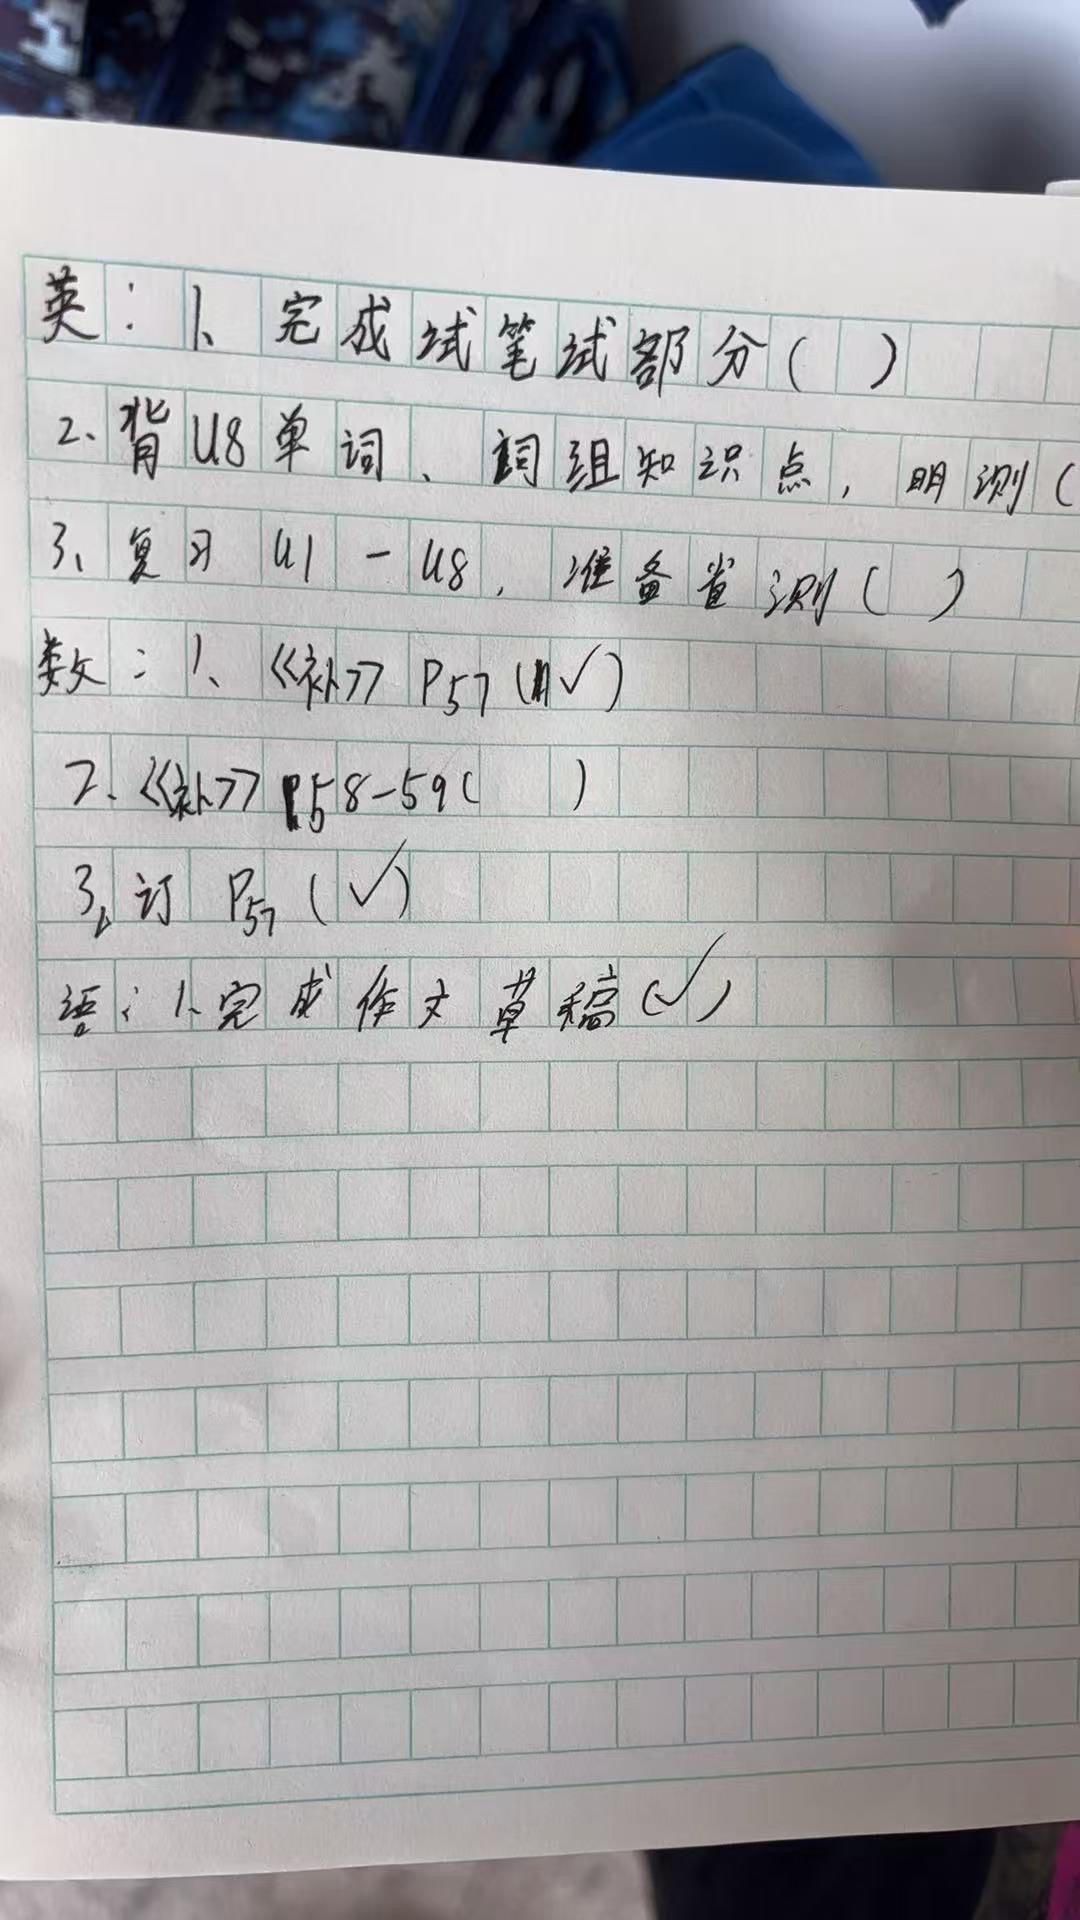 英：1、完成试笔试部分（ ）
2、背U8单词、词组知识点，明测（
3、复习U1-U8，准备省测（ ）
数：1、《补》P57（✓）
2、《补》P58-59（ ）
3、订P57（✓）
语：1、完成作文草稿（✓）